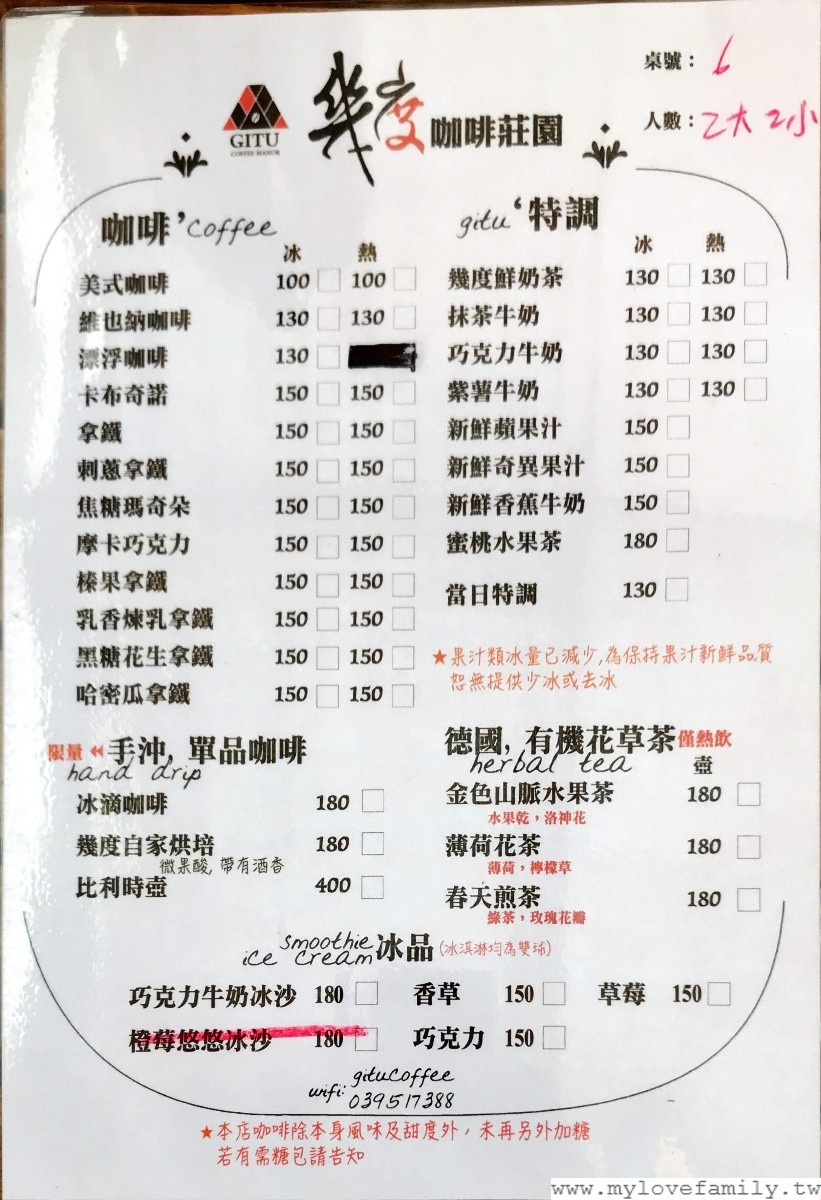 桌號： 6
人數： 2大 2小
GITU
COFFEE MANOR
幾度咖啡莊園
咖啡 'Coffee
冰 熱
美式咖啡 100 100
維也納咖啡 130 130
漂浮咖啡 130
卡布奇諾 150 150
拿鐵 150 150
刺蔥拿鐵 150 150
焦糖瑪奇朵 150 150
摩卡巧克力 150 150
榛果拿鐵 150 150
乳香煉乳拿鐵 150 150
黑糖花生拿鐵 150 150
哈密瓜拿鐵 150 150
gitu '特調
冰 熱
幾度鮮奶茶 130 130
抹茶牛奶 130 130
巧克力牛奶 130 130
紫薯牛奶 130 130
新鮮蘋果汁 150
新鮮奇異果汁 150
新鮮香蕉牛奶 150
蜜桃水果茶 180
當日特調 130
★果汁類冰量已減少,為保持果汁新鮮品質
恕無提供少冰或去冰
限量 手沖, 單品咖啡
hand drip
冰滴咖啡 180
幾度自家烘培 180
微果酸, 帶有酒香
比利時壺 400
德國, 有機花草茶 僅熱飲
herbal tea 壺
金色山脈水果茶 180
水果乾，洛神花
薄荷花茶 180
薄荷，檸檬草
春天煎茶 180
綠茶，玫瑰花瓣
smoothie
ice cream 冰品 (冰淇淋均為雙球)
巧克力牛奶冰沙 180 香草 150 草莓 150
橙莓悠悠冰沙 180 巧克力 150
wifi: gituCoffee
039517388
★本店咖啡除本身風味及甜度外，未再另外加糖
若有需糖包請告知
www.mylovefamily.tw